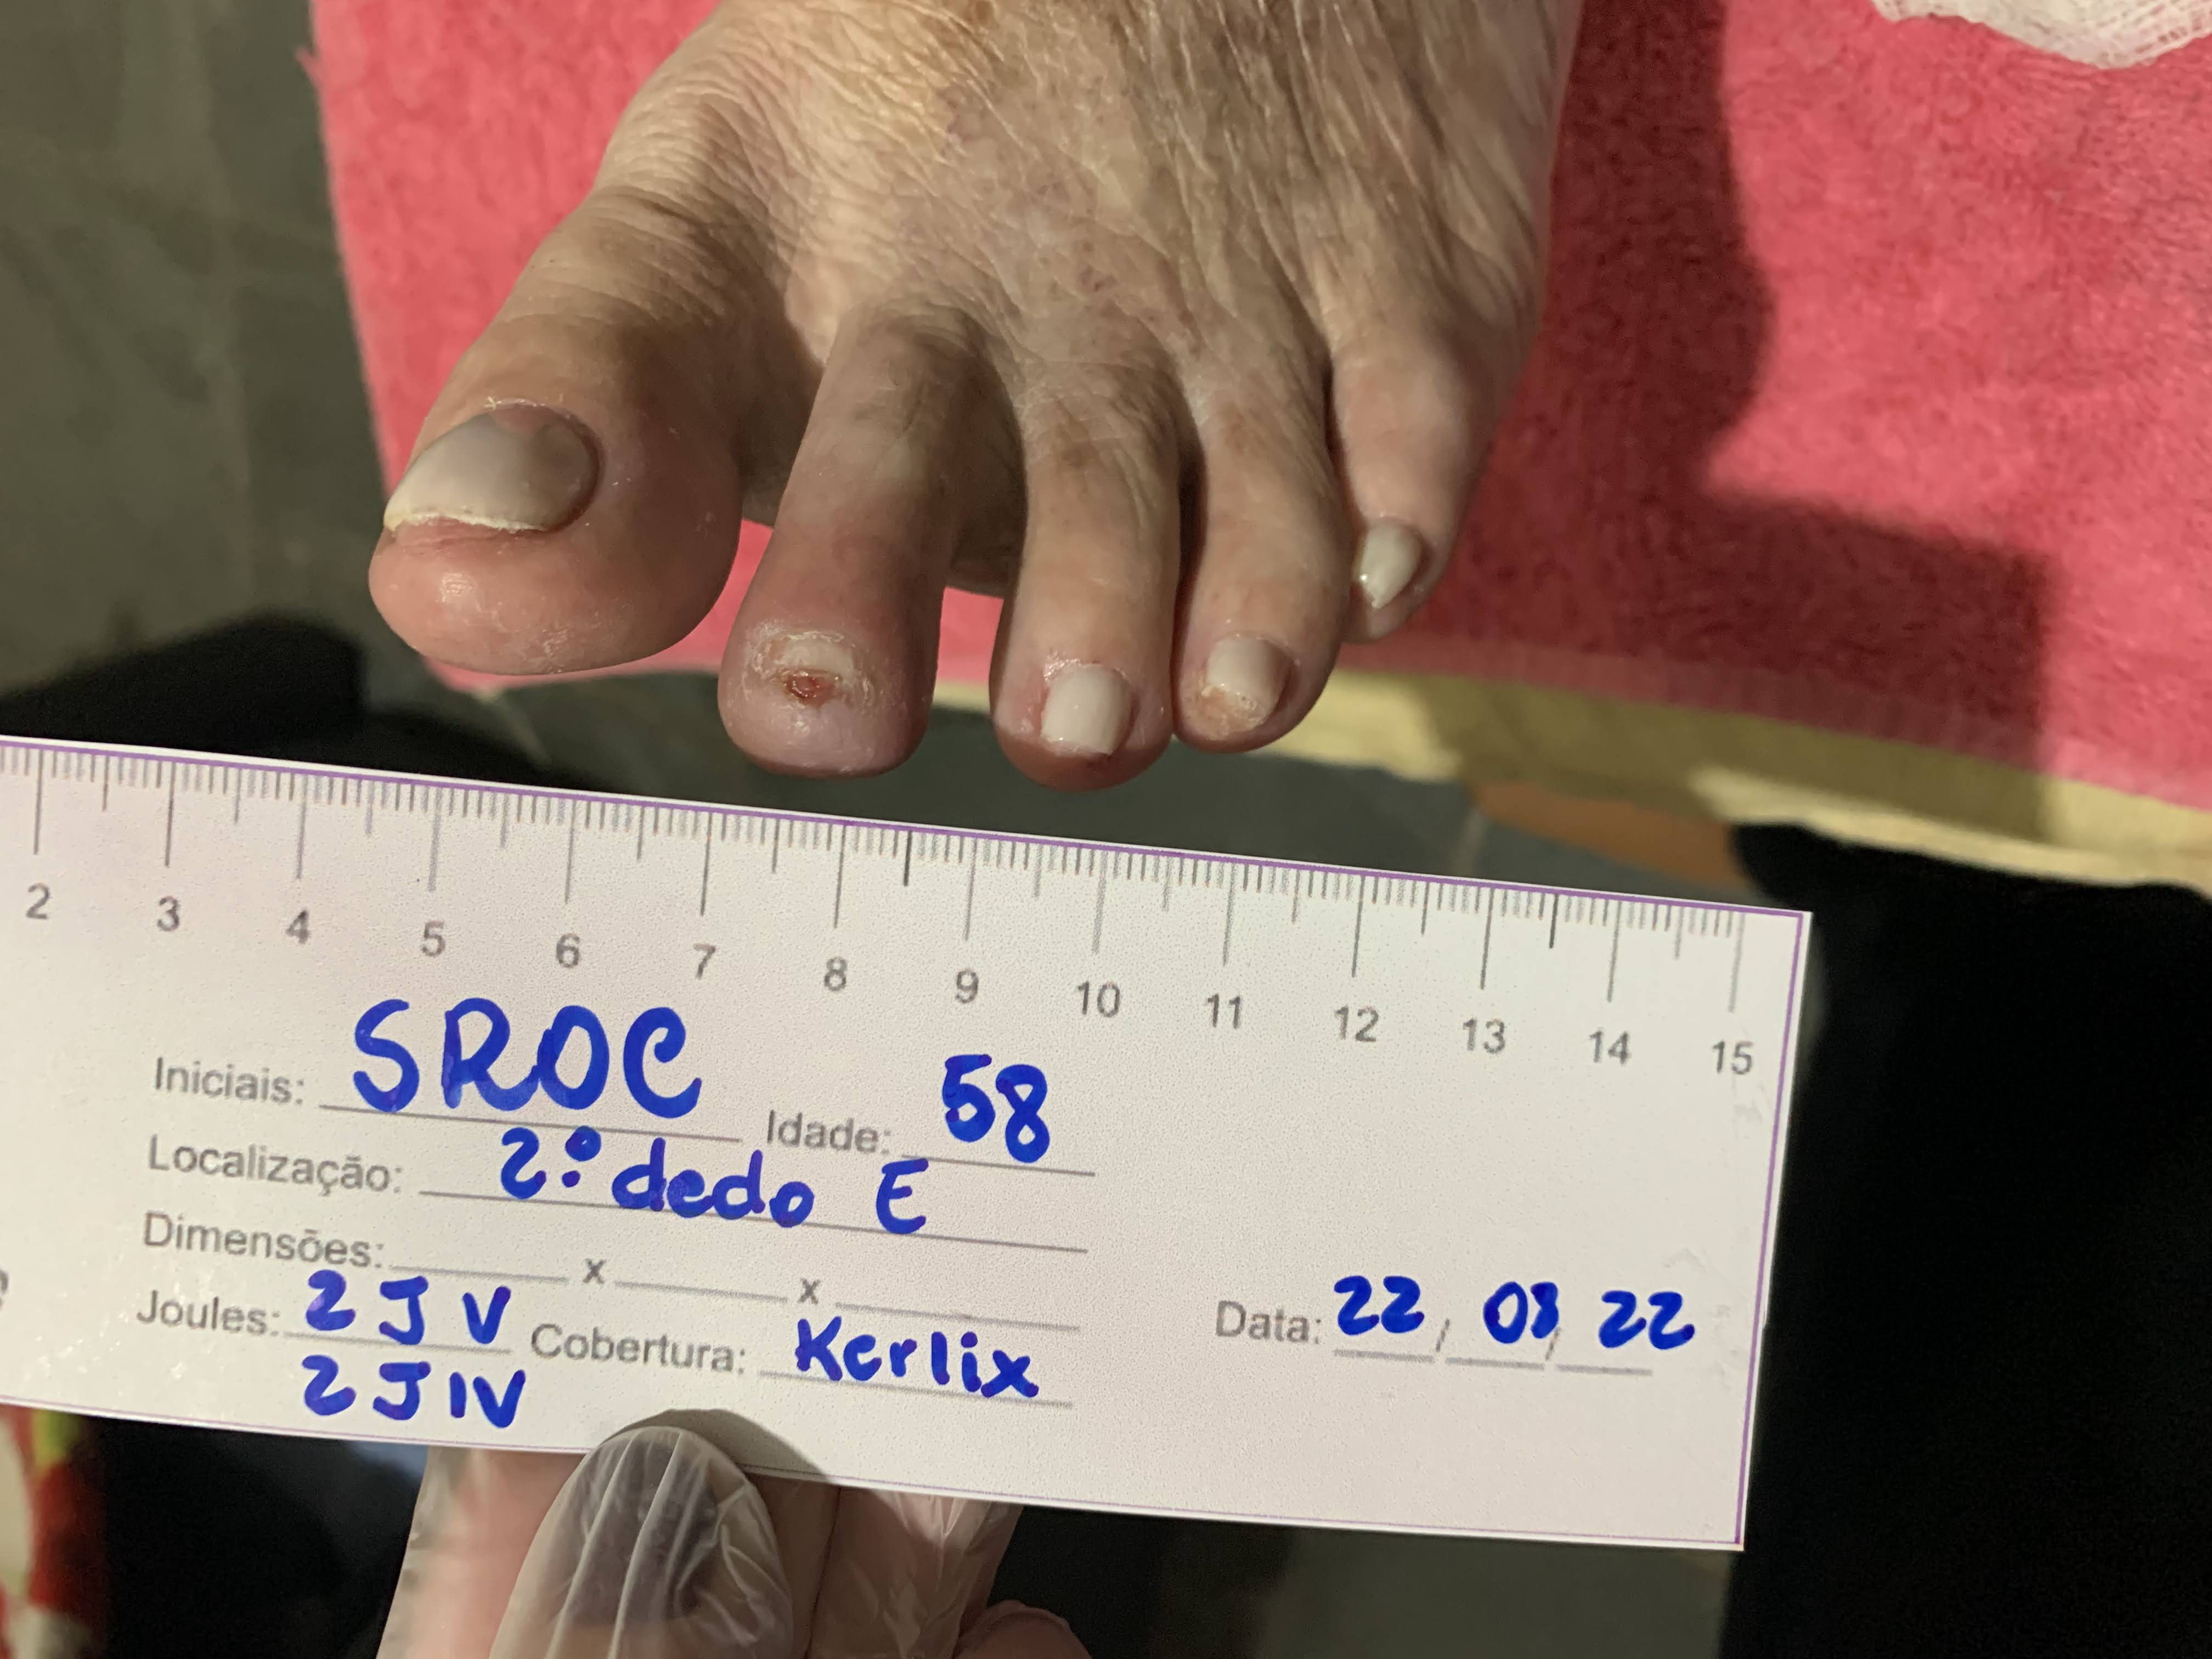 2 3 4 5 6 7 8 9 10 11 12 13 14 15
Iniciais: SROC Idade: 58
Localização: 2º dedo E
Dimensões: x x
Joules: 2 J V Cobertura: Kerlix Data: 22/08/22
2 J IV